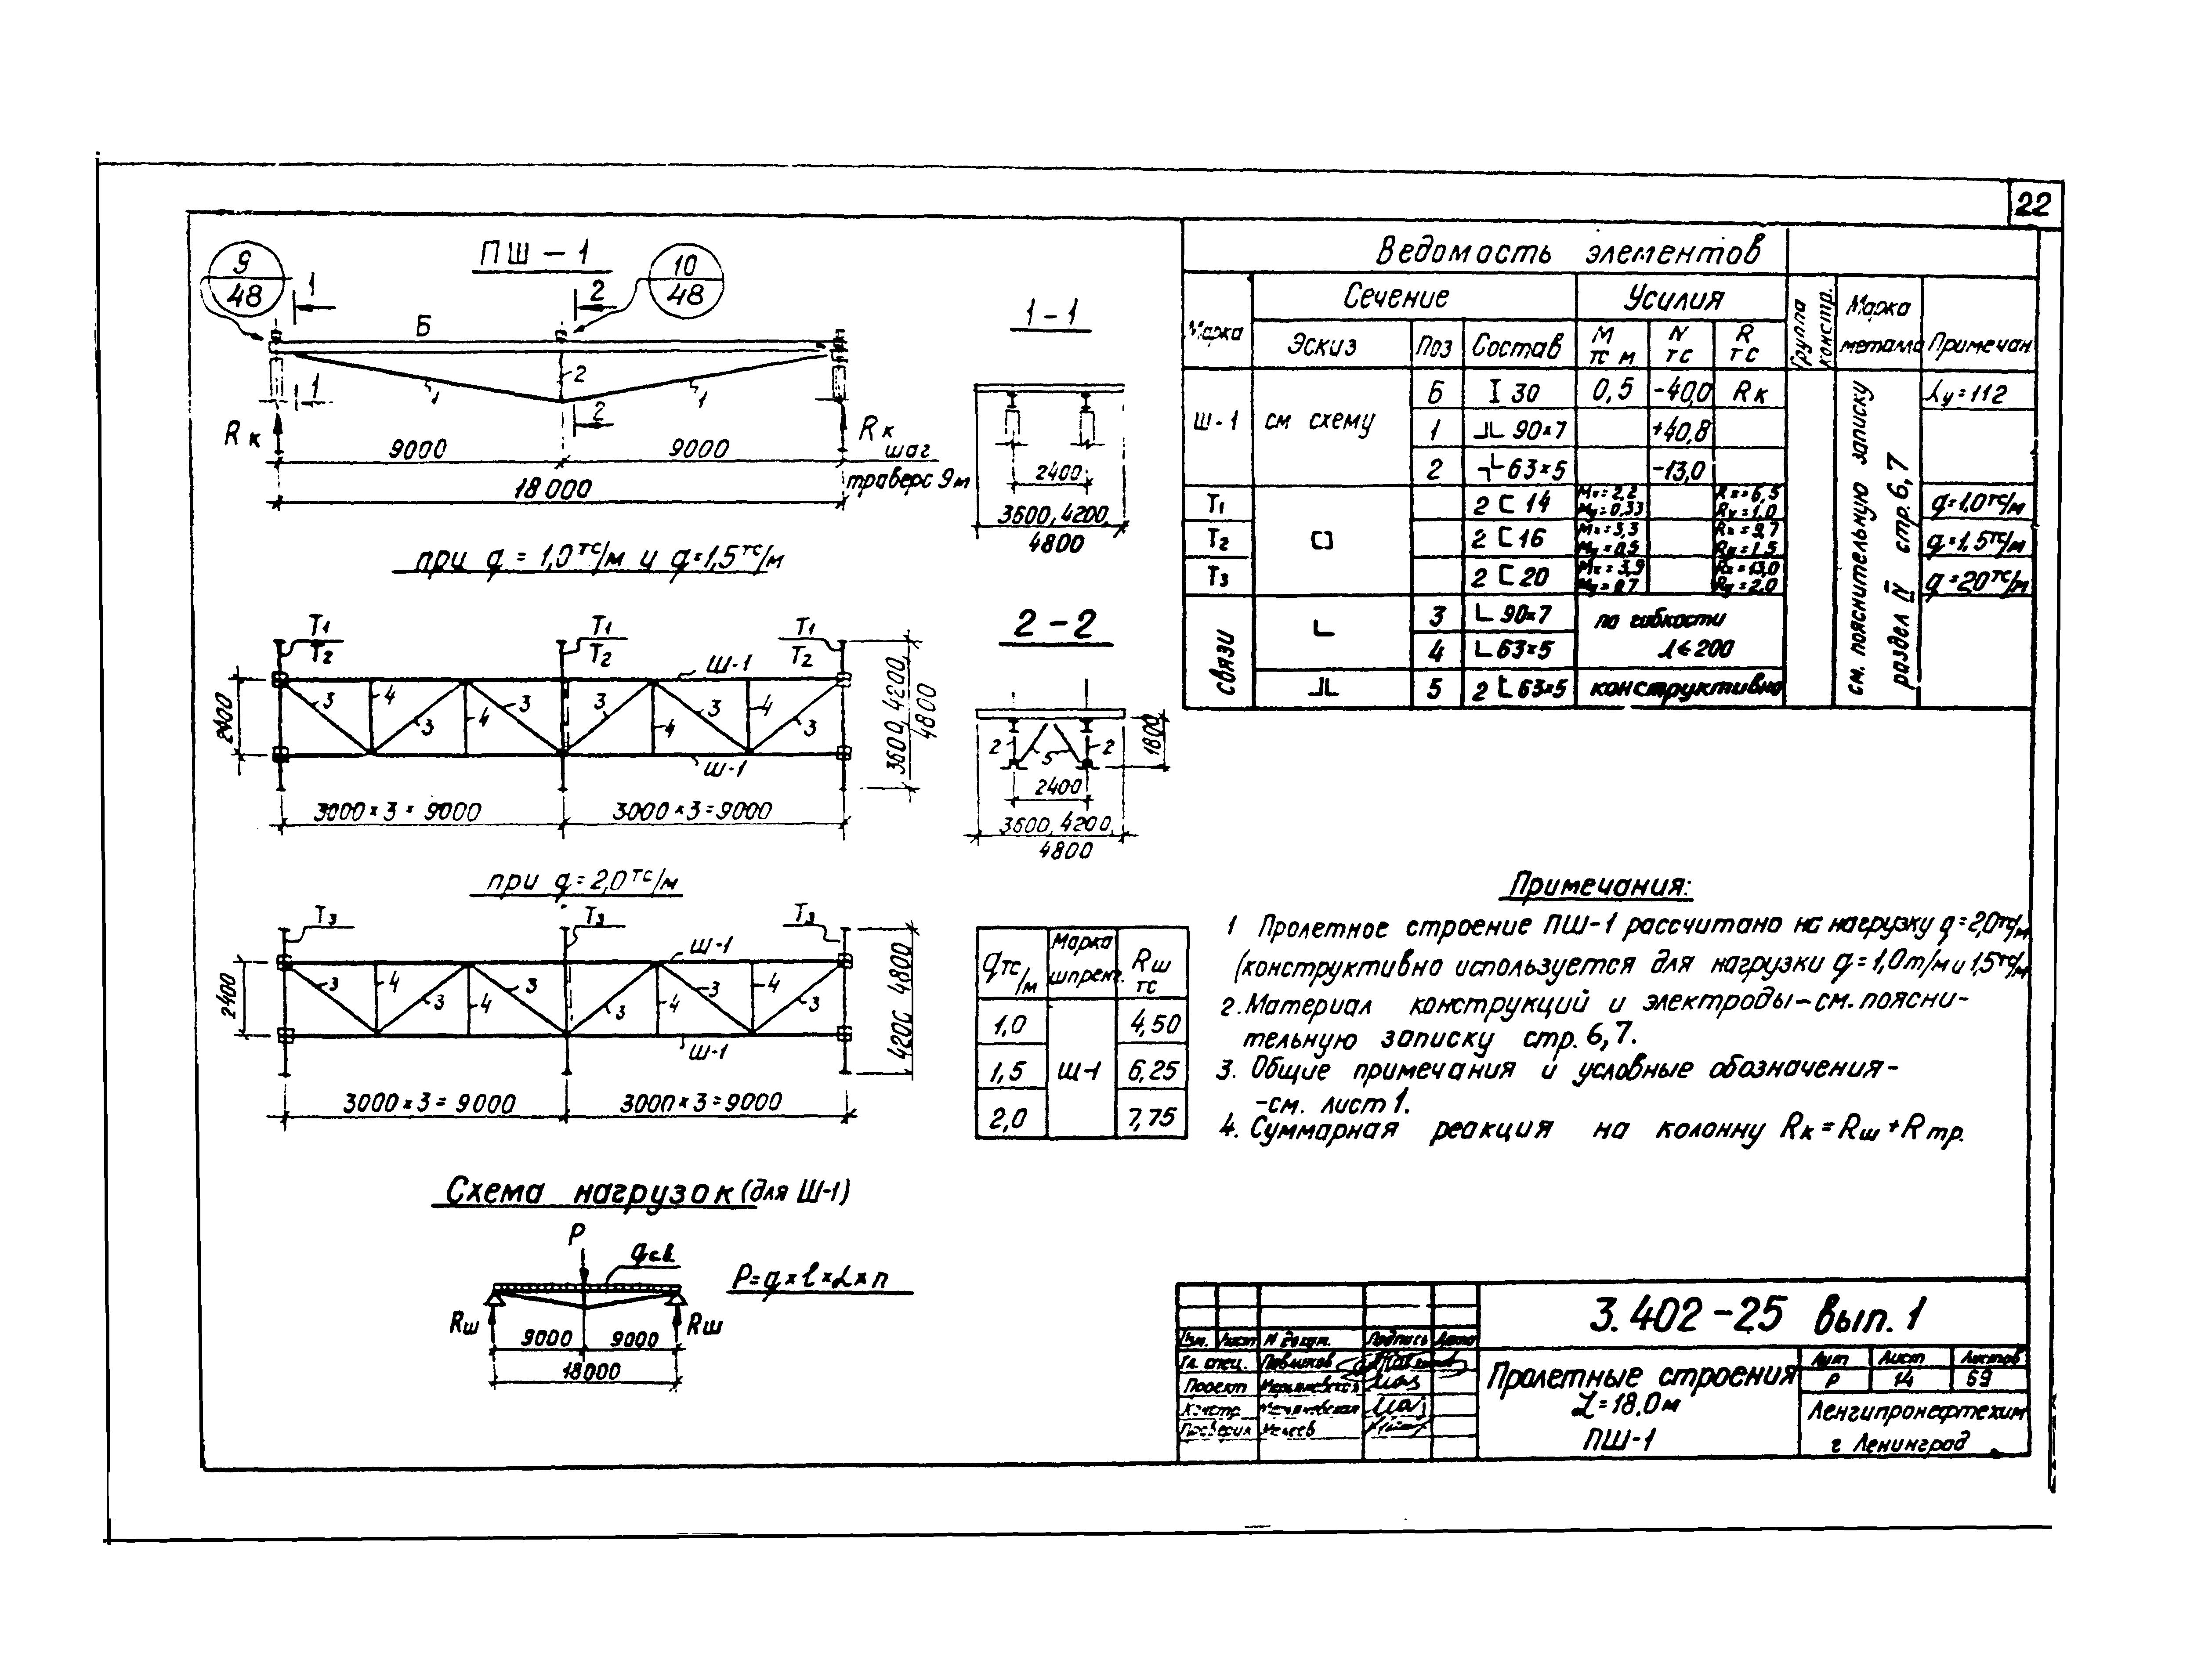 22
ПШ-1
9
48
10
48
1
2
Б
1
2
1
1
2
Rк
Rк
9000
9000
шаг
траверс 9м
18000
1-1
2400
3600, 4200,
4800
при q = 1,0 тс/м и q=1,5 тс/м
Т1
Т2
Т1
Т2
Т1
Т2
Ш-1
3
4
3
4
3
3
4
3
4
3
Ш-1
2400
3600, 4200,
4800
3000×3=9000
3000×3=9000
2-2
2
5
2
1800
2400
3600, 4200,
4800
при q=2,0 тс/м
Т3
Т3
Т3
Ш-1
3
4
3
4
3
3
4
3
4
3
Ш-1
2400
4200 4800
3000×3=9000
3000×3=9000
Схема нагрузок (для Ш-1)
P
qсв
Rш
Rш
9000
9000
18000
P=q×l×α×n
Ведомость элементов
Марка
Сечение
Усилия
Группа констр.
Марка металла
Примечан
Эскиз
Поз
Состав
М тс м
N тс
R тс
Ш-1 см схему Б I 30 0,5 -40,0 Rк λy=112
1 ⅃L 90×7 +40,8
2 ┐L 63×5 -13,0
Т1 2 [ 14 Mx=2,2 My=0,33 Rx=6,5 Ry=1,0 q=1,0 тс/м
Т2 2 [ 16 Mx=3,3 My=0,5 Rx=9,7 Ry=1,5 q=1,5 тс/м
Т3 2 [ 20 Mx=3,9 My=0,7 Rx=13,0 Ry=2,0 q=2,0 тс/м
связи
3 L 90×7 по гибкости
4 L 63×5 λ≤200
5 2 L 63×5 конструктивно
см. пояснительную записку
раздел IV стр. 6,7
q тс/м
Марка шпренг.
Rш тс
1,0 4,50
1,5 Ш-1 6,25
2,0 7,75
Примечания:
1 Пролетное строение ПШ-1 рассчитано на нагрузку q=2,0 тс/м
(конструктивно используется для нагрузки q=1,0т/м и 1,5 тс/м
2. Материал конструкций и электроды-см. поясни-
тельную записку стр. 6,7.
3. Общие примечания и условные обозначения-
-см. лист 1.
4. Суммарная реакция на колонну Rк=Rш+Rтр.
3.402-25 вып. 1
Изм. Лист N докум. Подпись Дата
Гл. спец. Павликов
Проект
Констр
Проверил
Пролетные строения
L=18,0м
ПШ-1
Лит Лист Листов
Р 14 69
Ленгипронефтехим
г Ленинград